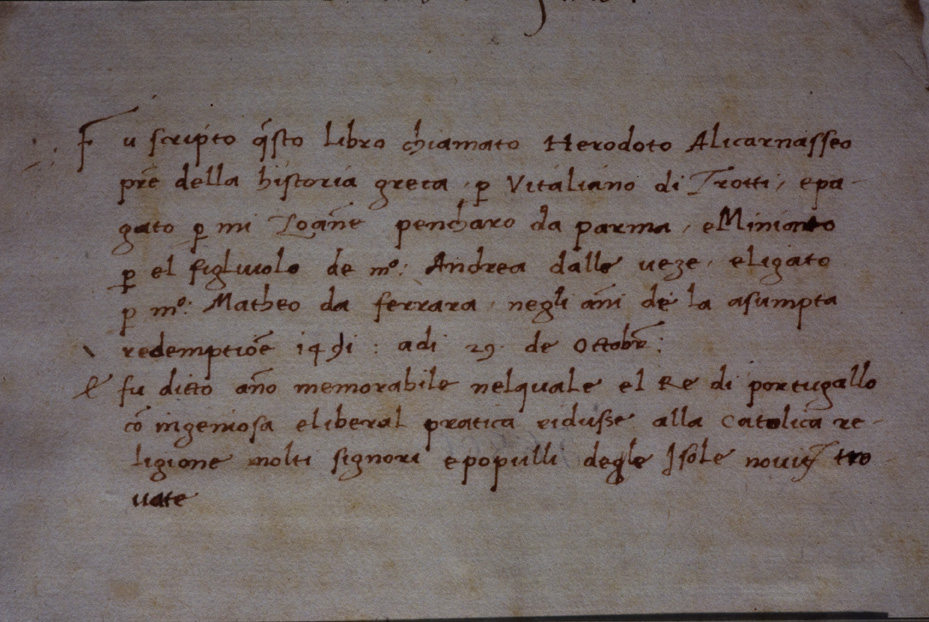 Fu scripto q̃sto libro chiamato Herodoto Alicarnasseo
prẽ della historia greca, ꝑ Vitaliano di Trotti, epa-
gato ꝑ mi Zoãne pencharo da parma, eMiniato
ꝑ el figliuolo de mº: Andrea dalle veze, eligato
ꝑ mº: Matheo da ferrara, negli ãni de la asumpta
redemptiõe 1491: adi 29. de Ottobr̃:
E fu ditto año memorabile nelquale el Re di portugallo
cõ ingeniosa eliberal pratica ridusse alla catolica re-
ligione molti signori epopulli degle Isole tro
uate